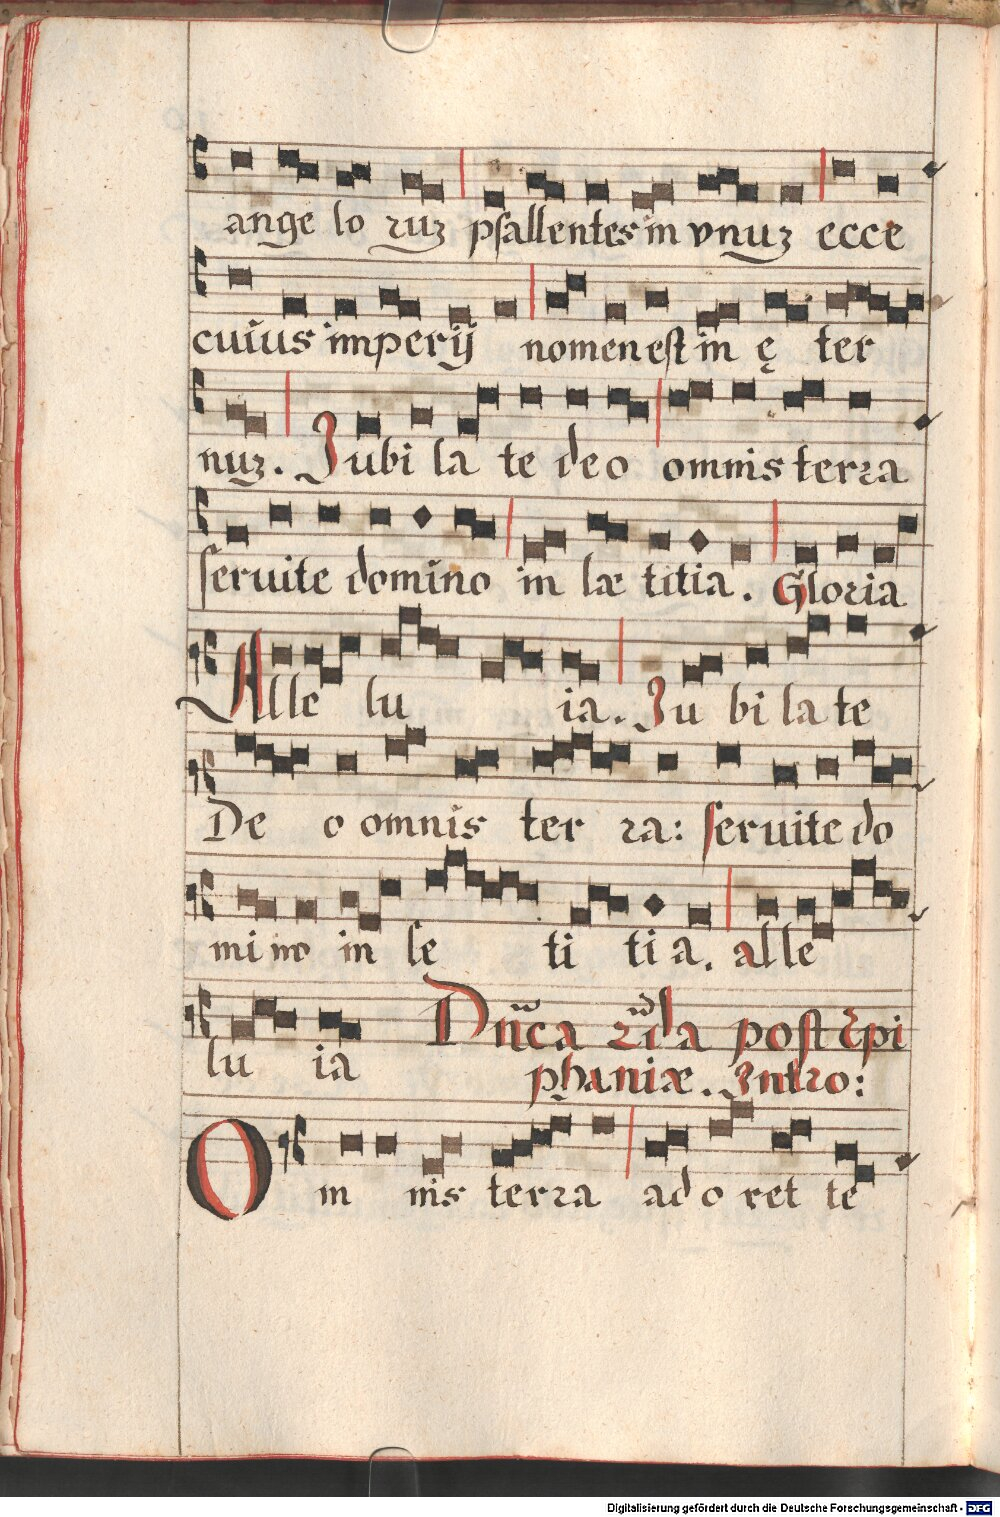 ange lo ruꝫ psallentes in vnuꝫ ecce
cuius imperij nomen est in ę ter
nuꝫ. Jubi la te deo omnis terra
seruite domino in læ titia. Gloria
Alle lu ia. Ju bi la te
De o omnis ter ra: seruite do
mi no in le ti ti a. alle
lu ia Dñ̃ca 2ᷓda post Epi
phaniæ. Intro:
Om nis terra ad o ret te
Digitalisierung gefördert durch die Deutsche Forschungsgemeinschaft - DFG